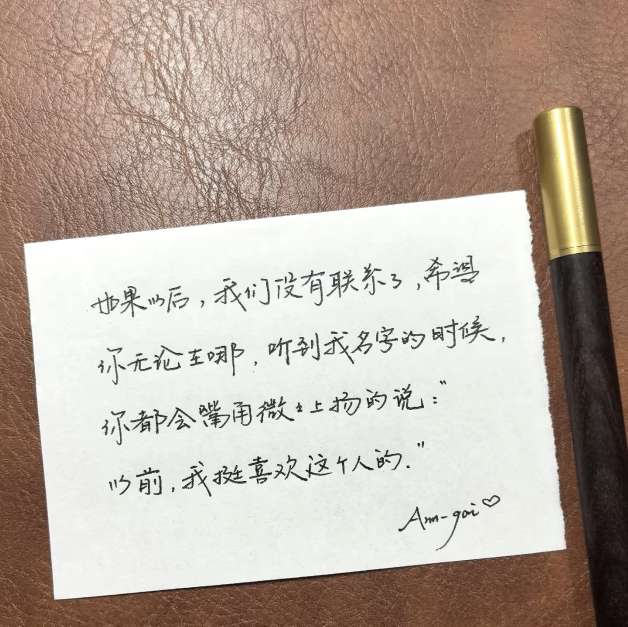 如果以后，我们没有联系了，希望
你无论在哪，听到我名字的时候，
你都会嘴角微微上扬的说："
以前，我挺喜欢这个人的."
Ann-gai♡